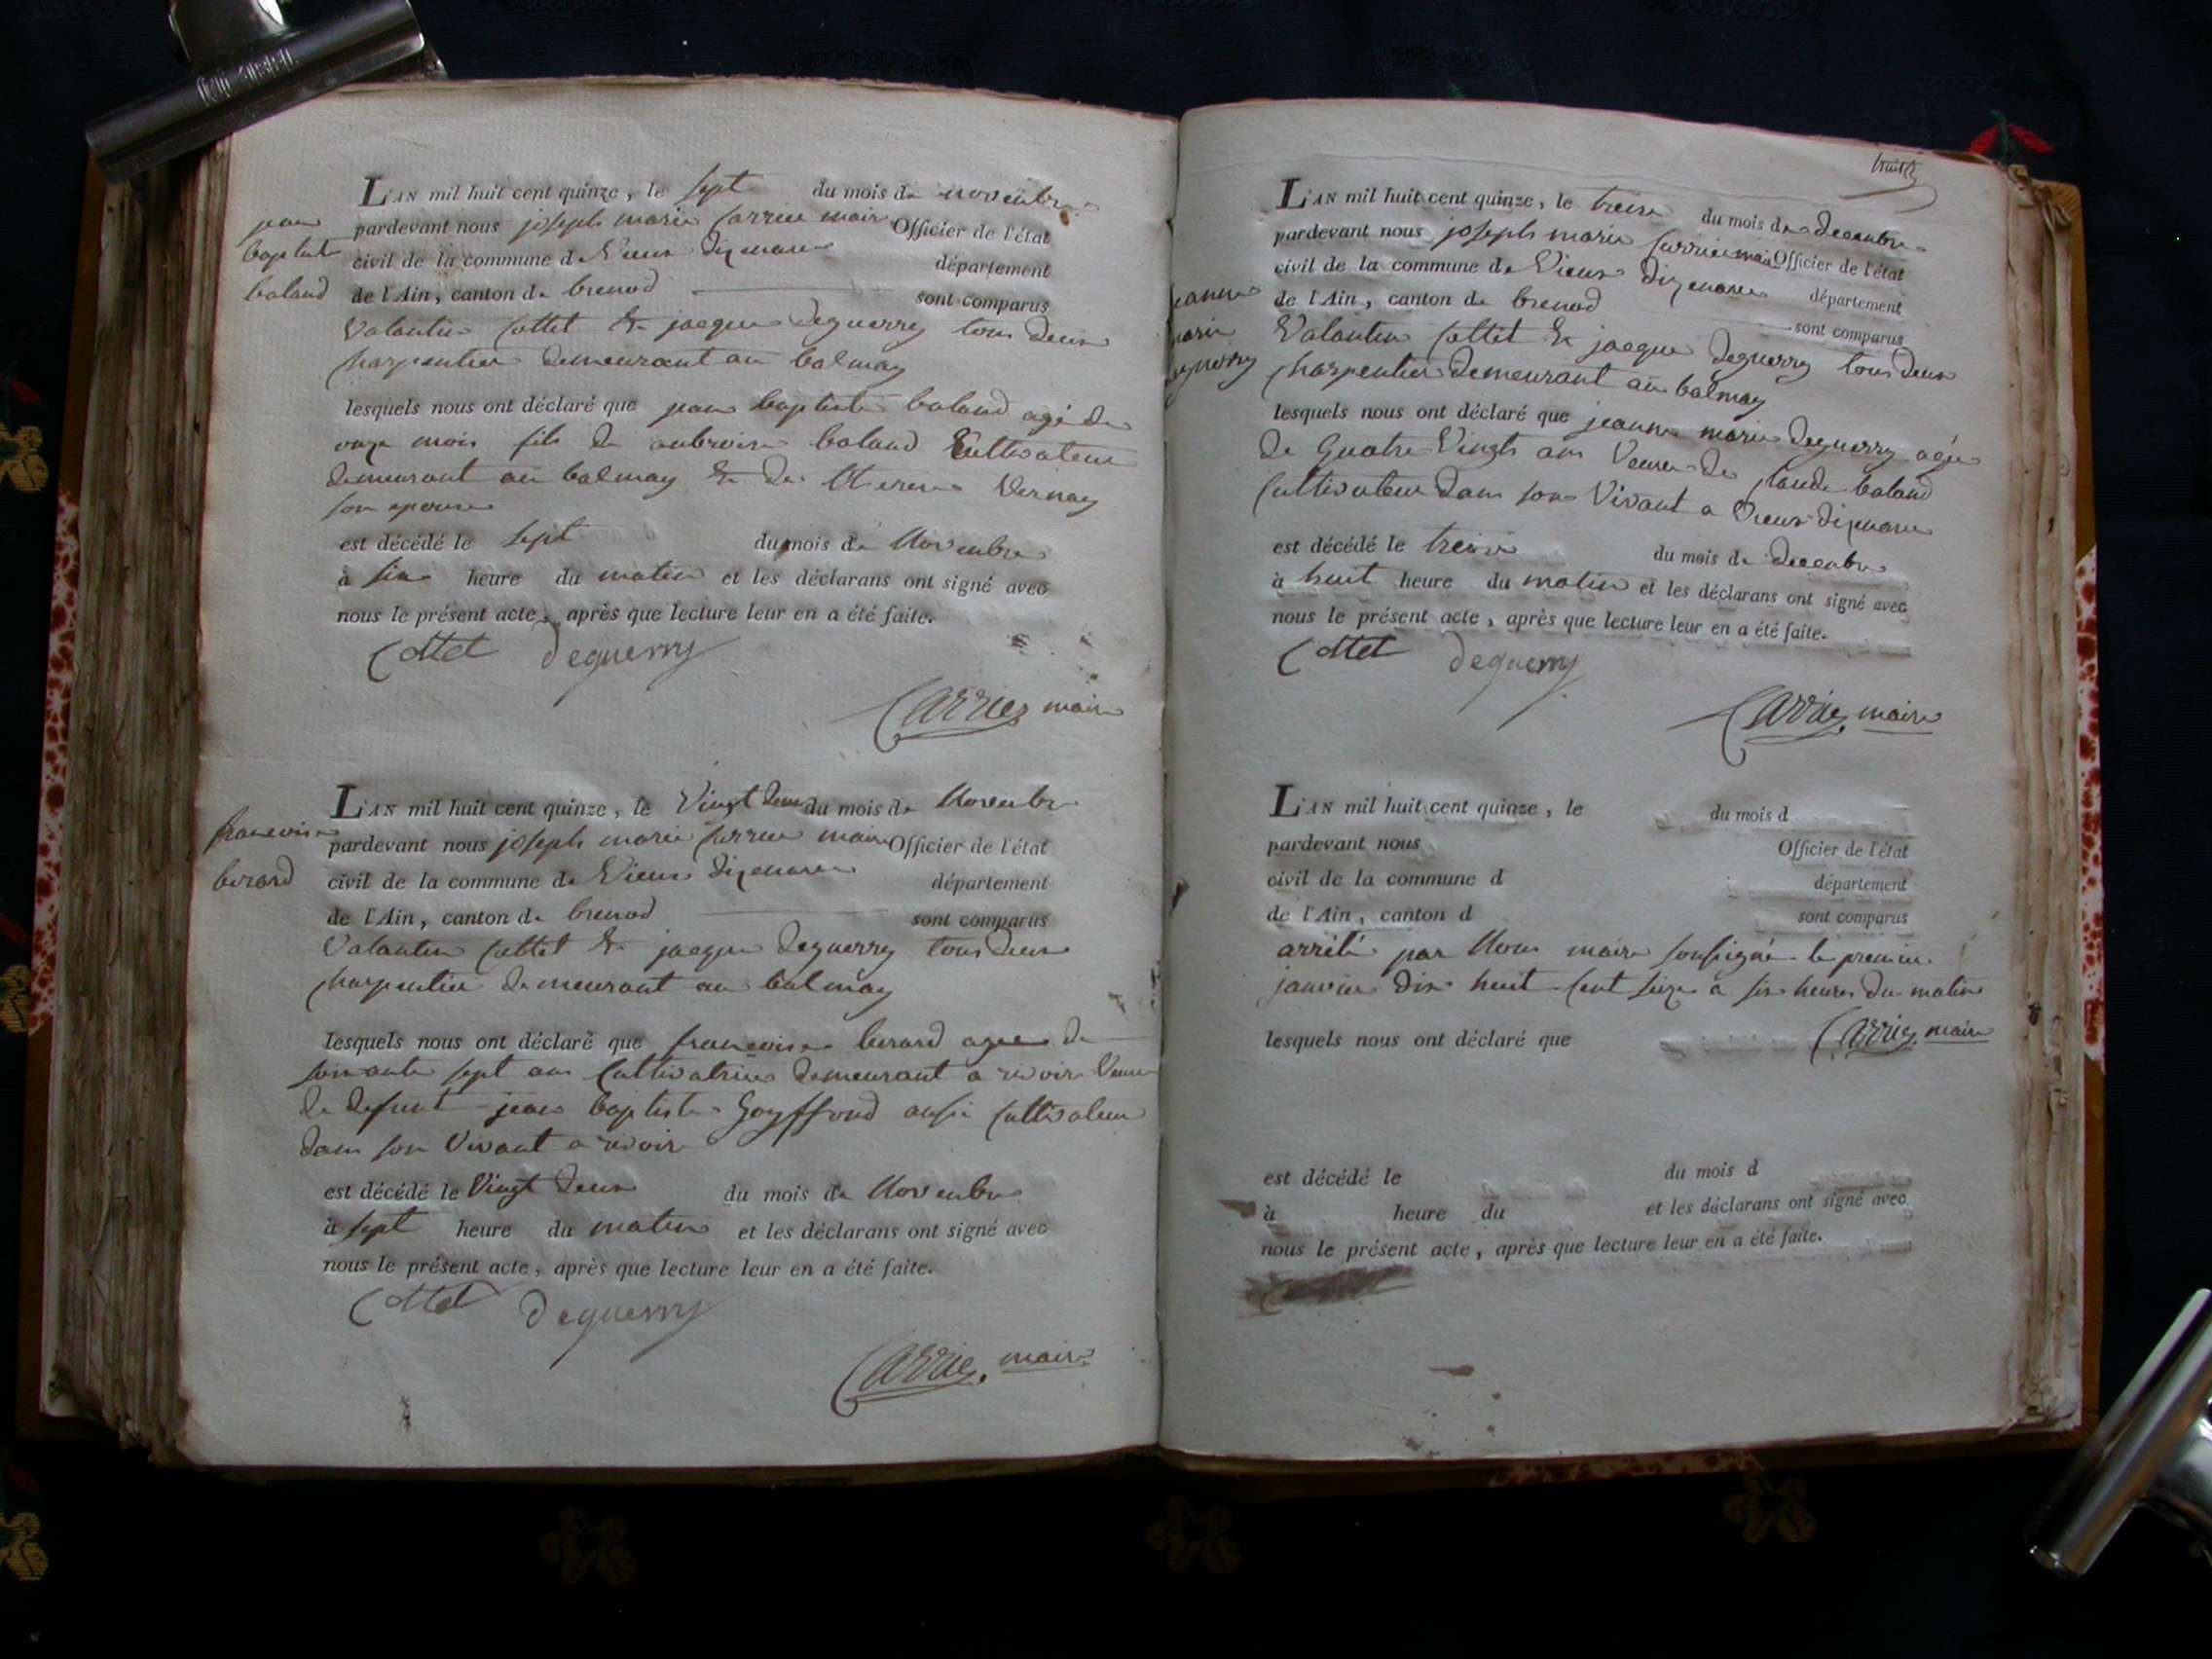 jean
baptiste
baland
L'AN mil huit cent quinze, le sept du mois de novembre
pardevant nous joseph marie Carrier maire Officier de l'état
civil de la commune de Vieux dizenave département
de l'Ain, canton de brenod sont comparus
Valantin Cottet & jacque deguerry tous deux
charpentier demeurant au balmay
lesquels nous ont déclaré que jean baptiste baland agé de
onze mois fils de anbroise baland Cultivateur
demeurant au balmay & de Vernay
son epouse
est décédé le sept du mois de Novembre
à six heure du matin et les déclarans ont signé avec
nous le présent acte, après que lecture leur en a été faite.
Cottet deguerry
Carrier maire
francoise
berard
L'AN mil huit cent quinze, le Vingt deux du mois de Novembre
pardevant nous joseph marie Carrier maire Officier de l'état
civil de la commune de Vieux dizenave département
de l'Ain, canton de brenod sont comparus
Valantin Cottet & jacque deguerry tous deux
charpentier demeurant au balmay
lesquels nous ont déclaré que francoise berard agée de
soixante sept ans Cultivatrice demeurant a Veuve
de defunt jean baptiste Goyffond ausi Cultivateur
dans son Vivant a
est décédé le Vingt deux du mois de Novembre
à sept heure du matin et les déclarans ont signé avec
nous le présent acte, après que lecture leur en a été faite.
Cottet deguerry
Carrier maire
huit
jeanne
marie
deguerry
L'AN mil huit cent quinze, le treize du mois de decembre
pardevant nous joseph marie Carrier maire Officier de l'état
civil de la commune de Vieux dizenave département
de l'Ain, canton de brenod sont comparus
Valantin Cottet & jacque deguerry tous deux
charpentier demeurant au balmay
lesquels nous ont déclaré que jeanne marie deguerry agée
de Quatre Vingts ans Veuve de Claude baland
Cultivateur dans son Vivant a Vieux dizenave
est décédé le treize du mois de decembre
à huit heure du matin et les déclarans ont signé avec
nous le présent acte, après que lecture leur en a été faite.
Cottet deguerry
Carrier maire
L'AN mil huit cent quinze, le du mois d
pardevant nous Officier de l'état
civil de la commune d département
de l'Ain, canton d sont comparus
arrêté par Nous maire soussigné le premier
janvier dix huit cent seize a six heures du matin
lesquels nous ont déclaré que Carrier maire
est décédé le du mois d
à heure du et les déclarans ont signé avec
nous le présent acte, après que lecture leur en a été faite.